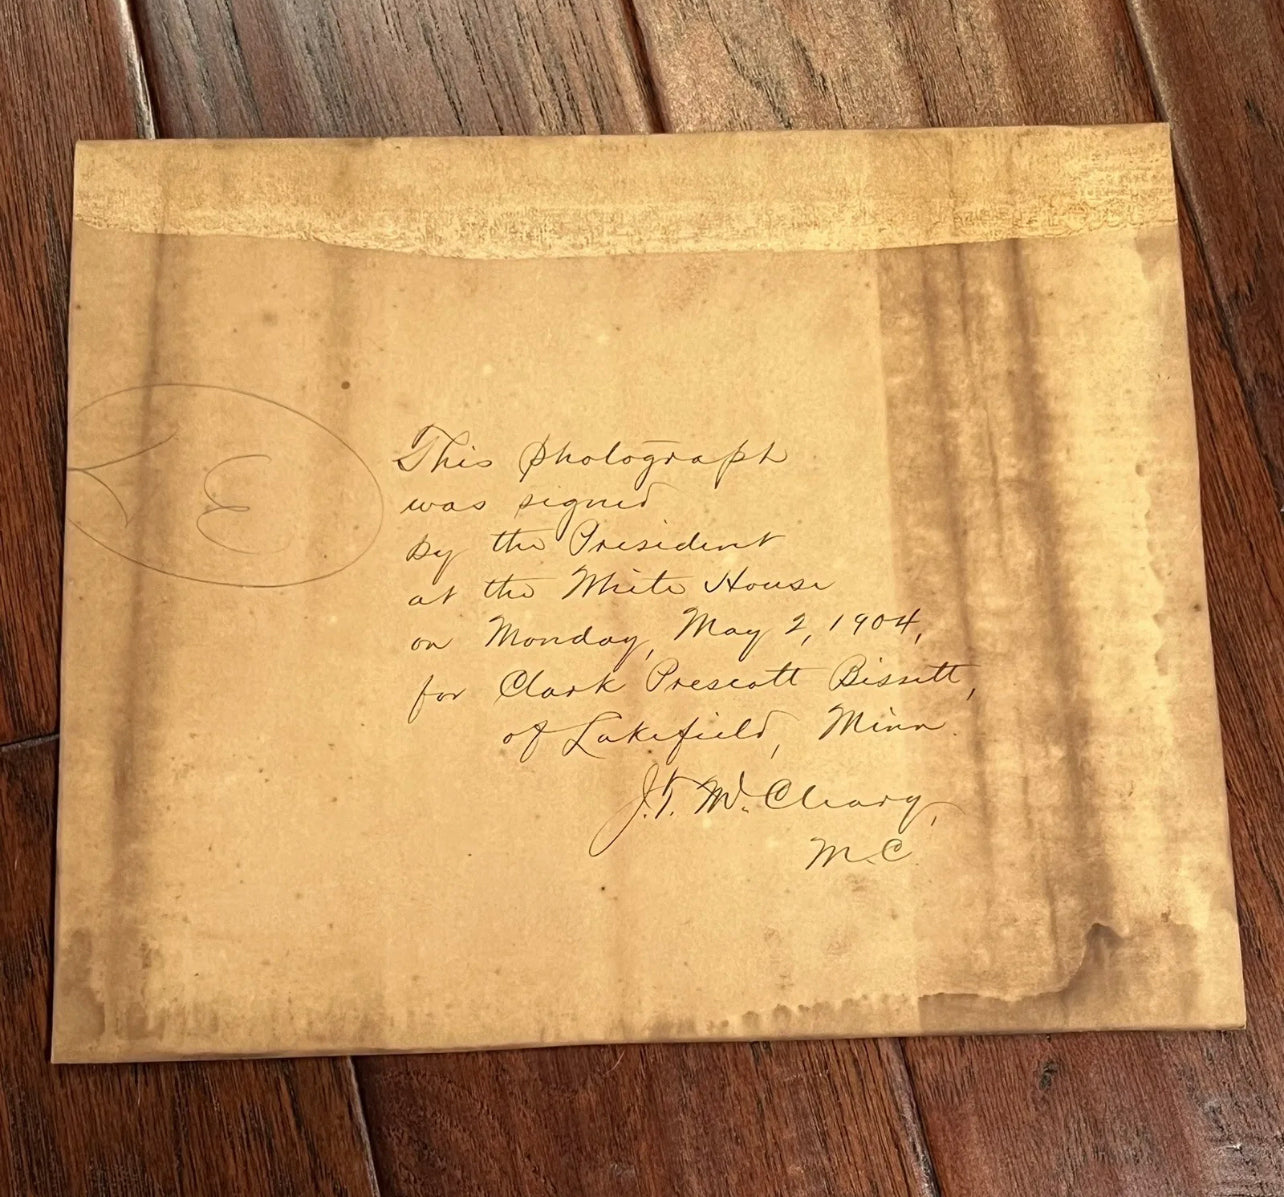 This photograph
was signed
by the President
at the White House
on Monday, May 2, 1904,
for Clark Prescott Bissett,
of Lakefield, Minn.
J.T. McCleary,
M.C.
E